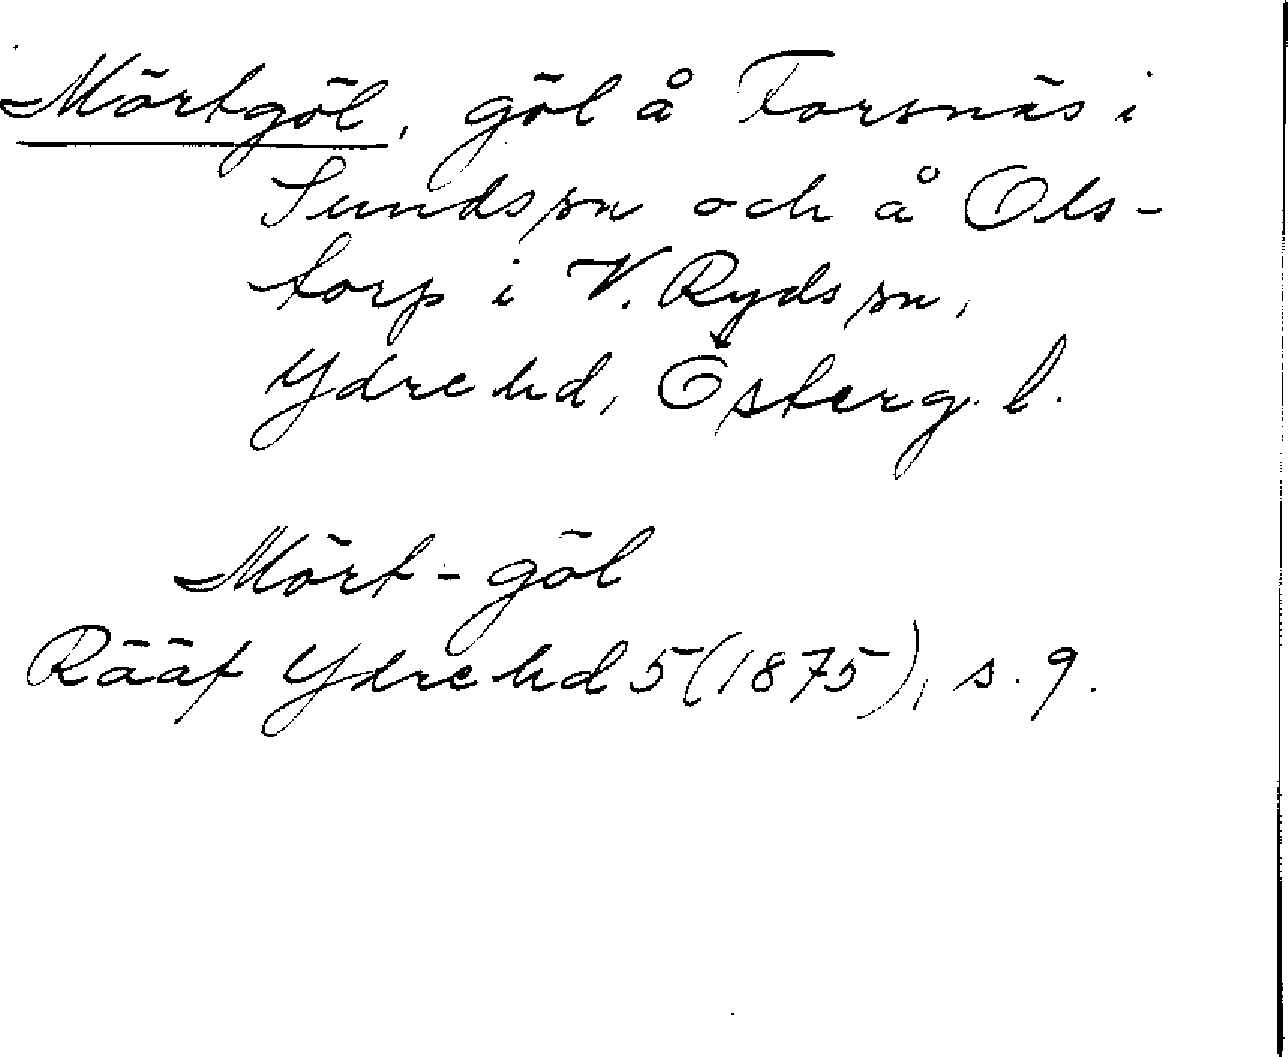 Mörtgöl, göl å Forsnäs i
Sunds sn och å Ols-
torp i V. Ryds sn,
Ydre hd, Österg. l.
Mört-göl
Rääf Ydre hd 5 (1875), s. 9.